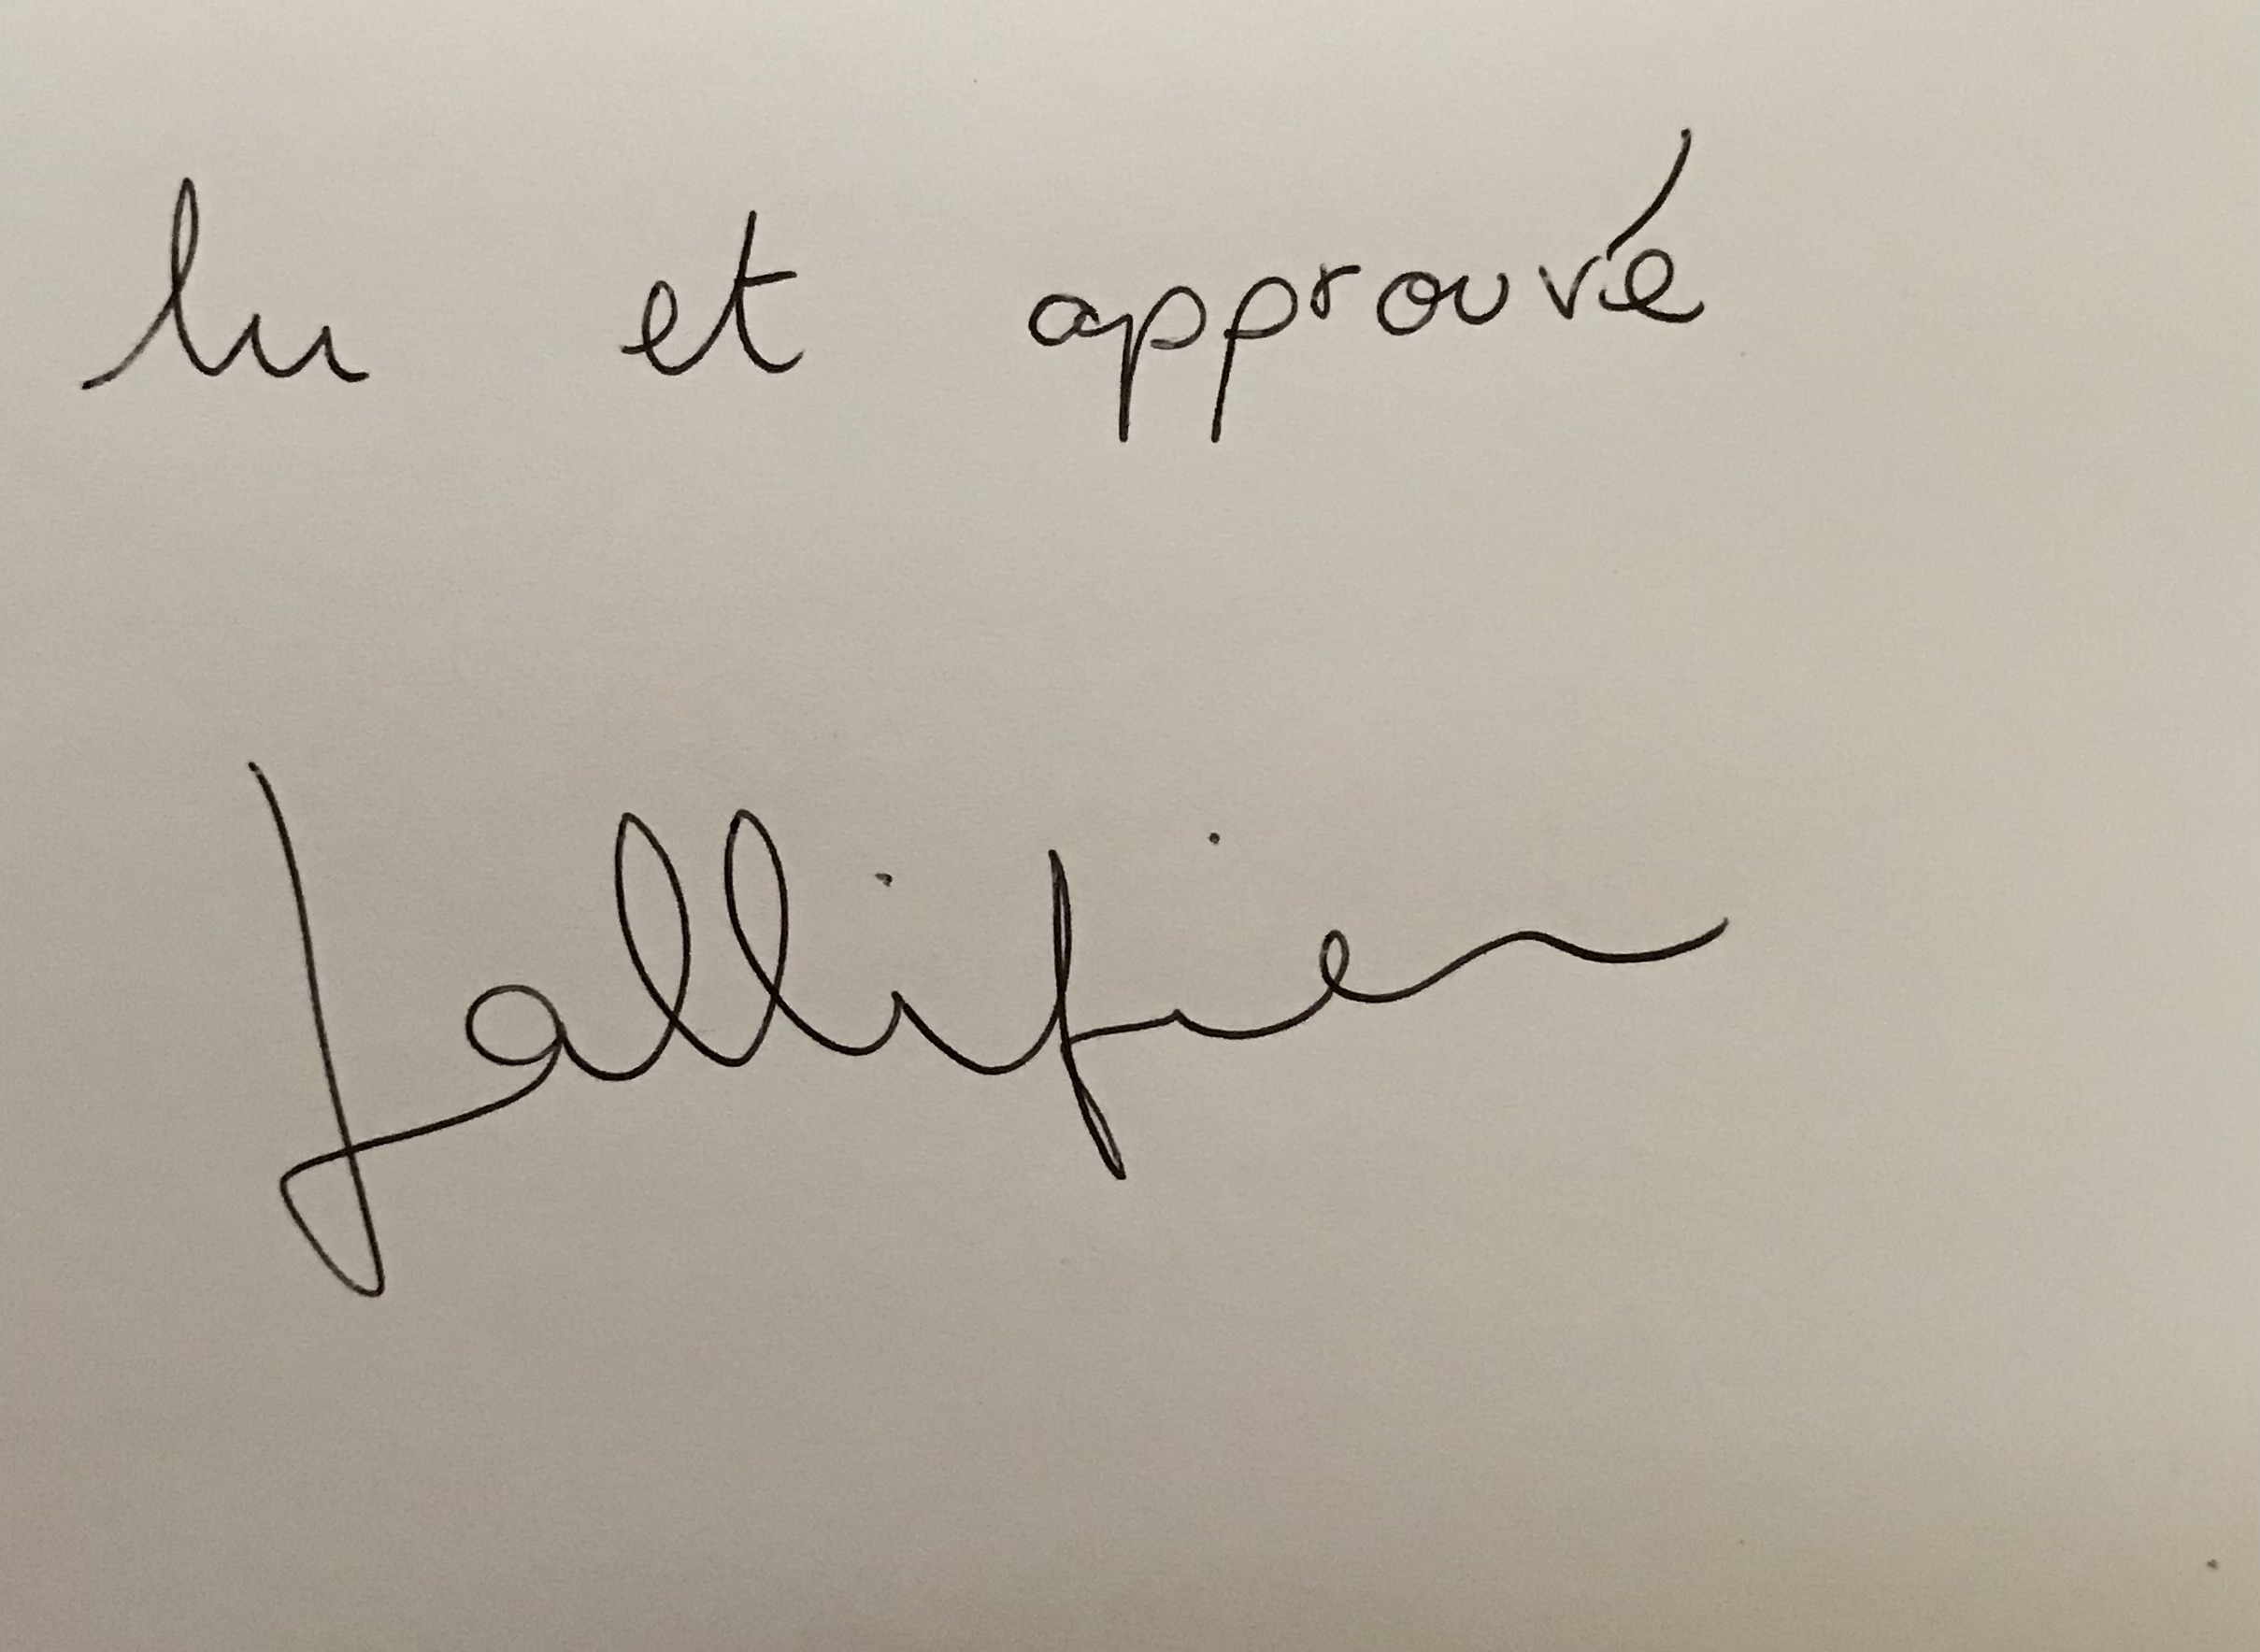 lu et approuvé
Jallifier